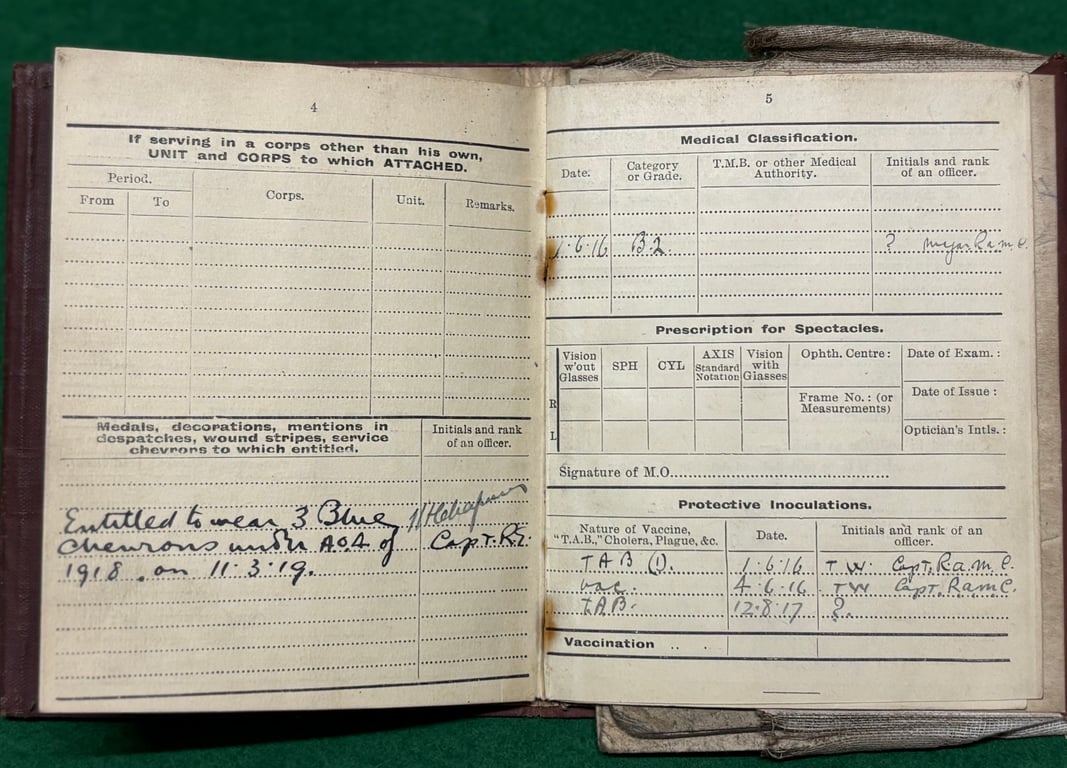 4
If serving in a corps other than his own,
UNIT and CORPS to which ATTACHED.
Period. Corps. Unit. Remarks.
From To
Medals, decorations, mentions in
despatches, wound stripes, service
chevrons to which entitled.
Initials and rank
of an officer.
Entitled to wear 3 Blue
chevrons under AO4 of
1918. on 11.3.19.
Capt. R.E.
5
Medical Classification.
Date. Category
or Grade. T.M.B. or other Medical
Authority. Initials and rank
of an officer.
1.6.16 B.2. ? Major R.a.m.c.
Prescription for Spectacles.
Vision
w'out
Glasses
SPH
CYL
AXIS
Standard
Notation
Vision
with
Glasses
Ophth. Centre:
Frame No.: (or
Measurements)
Date of Exam.:
Date of Issue:
Optician's Intls.:
R
L
Signature of M.O.
Protective Inoculations.
Nature of Vaccine,
"T.A.B.," Cholera, Plague, &c.
Date.
Initials and rank of an
officer.
TAB (1). 1.6.16 T.W. Capt. R.a.m.c.
vac. 4.6.16 TW Capt. Ramc.
TAB. 12.8.17 ?.
Vaccination ..